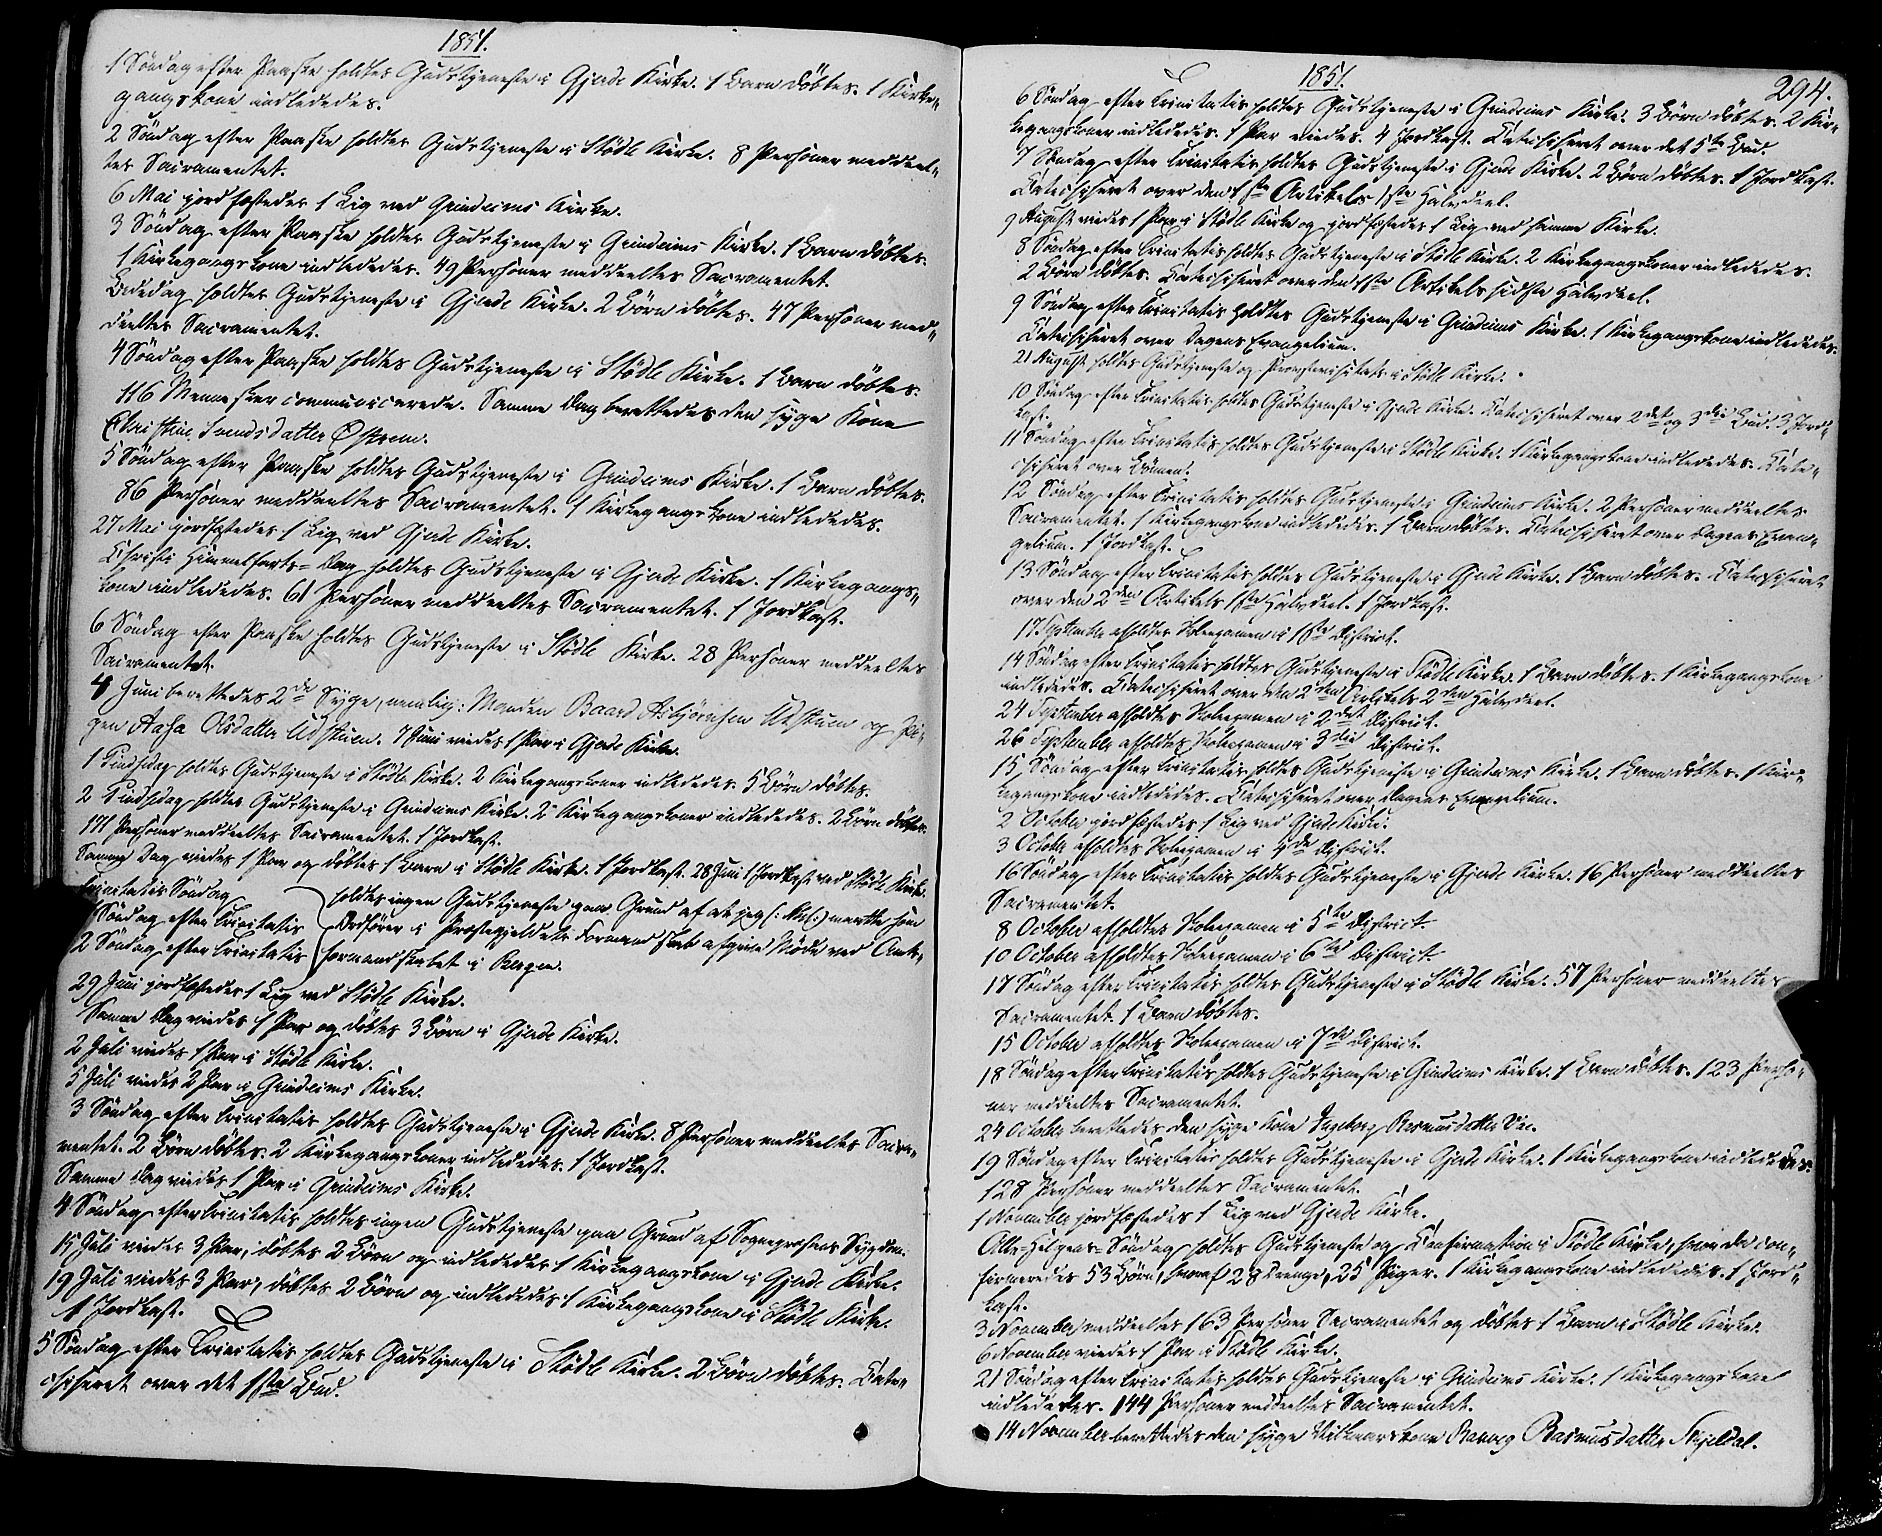 1851.
1 Söndag efter Paaske holdtes Gudstjeneste i Gjerde Kirke. 1 Barn döbtes. 1 Kirke-
gangskone indlededes.
2 Söndag efter Paaske holdtes Gudstjeneste i Stödle Kirke. 8 Personer meddeel-
tes Sacramentet.
6 Mai jordfæstedes 1 Lig ved Grindeims Kirke.
3 Söndag efter Paaske holdtes Gudstjeneste i Grindeims Kirke. 1 Barn döbtes.
1 Kirkegangskone indlededes. 49 Personer meddeeltes Sacramentet.
Bededag holdtes Gudstjeneste i Gjerde Kirke. 2 Börn döbtes. 47 Personer med-
deeltes Sacramentet.
4 Söndag efter Paaske holdtes Gudstjeneste i Stödle Kirke. 1 Barn döbtes.
116 Mennesker communicerede. Samme Dag berettedes den syge Kone
Christine Svendsdatter Østrem.
5 Söndag efter Paaske holdtes Gudstjeneste i Grindeims Kirke. 1 Barn döbtes.
86 Personer meddeeltes Sacramentet. 1 Kirkegangskone indlededes.
27 Mai jordfæstedes 1 Lig ved Gjerde Kirke.
Christi Himmelfarts-Dag holdtes Gudstjeneste i Gjerde Kirke. 1 Kirkegangs-
kone indlededes. 61 Personer meddeeltes Sacramentet. 1 Jordkast.
6 Söndag efter Paaske holdtes Gudstjeneste i Stödle Kirke. 28 Personer meddeeltes
Sacramentet.
4 Juni berettedes 2de Syge, nemlig: Manden Baard Asbjörnsen Udstuen og Pi-
gen Aasa Olsdatter Udstuen. 7 Juni viedes 1 Par i Gjerde Kirke.
1 Pindsdag holdtes Gudstjeneste i Stödle Kirke. 2 Kirkegangskoner indlededes. 5 Börn döbtes.
2 Pindsdag holdtes Gudstjeneste i Grindeims Kirke. 2 Kirkegangskoner indlededes. 2 Börn döbtes.
171 Personer meddeeltes Sacramentet. 1 Jordkast.
Samme Dag viedes 1 Par og döbtes 1 Barn i Stödle Kirke. 1 Jordkast. 28 Juni 1 Jordkast ved Stödle Kirke.
Trinitatis Söndag holdtes ingen Gudstjeneste paa Grund af at jeg maatte som
1 Söndag efter Trinitatis Ordförer i Præstegjeldets Formandskab afgive Möde ved Amt-
2 Söndag efter Trinitatis formandskabet i Bergen.
29 Juni jordfæstedes 1 Lig ved Stödle Kirke.
Samme Dag viedes 1 Par og döbtes 3 Börn i Gjerde Kirke.
2 Juli viedes 1 Par i Stödle Kirke.
5 Juli viedes 2 Par i Grindeims Kirke.
3 Söndag efter Trinitatis holdtes Gudstjeneste i Gjerde Kirke. 8 Personer meddeeltes Sacra-
mentet. 2 Börn döbtes. 2 Kirkegangskoner indlededes. 1 Jordkast.
Samme Dag viedes 1 Par i Grindeims Kirke.
4 Söndag efter Trinitatis holdtes ingen Gudstjeneste paa Grund af Sognepræstens Sygdom.
15 Juli viedes 3 Par, döbtes 2 Börn og indlededes 1 Kirkegangskone i Gjerde Kirke.
19 Juli viedes 3 Par, döbtes 2 Börn og indlededes 1 Kirkegangskone i Stödle Kirke.
1 Jordkast.
5 Söndag efter Trinitatis holdtes Gudstjeneste i Stödle Kirke. 2 Börn döbtes. Cate-
chiseret over det 1ste Bud.
1851.
294.
6 Söndag efter Trinitatis holdtes Gudstjeneste i Grindeims Kirke. 3 Börn döbtes. 2 Kir-
kegangskoner indlededes. 1 Par viedes. 4 Jordkast. Catechiseret over det 5te Bud.
7 Söndag efter Trinitatis holdtes Gudstjeneste i Gjerde Kirke. 2 Börn döbtes. 1 Jordkast.
Catechiseret over den 1ste Artikels 1ste Halvdeel.
9 August viedes 1 Par i Stödle Kirke og jordfæstedes 1 Lig ved samme Kirke.
8 Söndag efter Trinitatis holdtes Gudstjeneste i Stödle Kirke. 2 Kirkegangskoner indlededes.
2 Börn döbtes. Catechiseret over den 1ste Artikels sidste Halvdeel.
9 Söndag efter Trinitatis holdtes Gudstjeneste i Grindeims Kirke. 1 Kirkegangskone indlededes.
Catechiseret over Dagens Evangelium.
21 August holdtes Gudstjeneste og Provstevisitats i Stödle Kirke.
10 Söndag efter Trinitatis holdtes Gudstjeneste i Gjerde Kirke. Catechiseret over 2det og 3die Bud. 3 Jord-
kast.
11 Söndag efter Trinitatis holdtes Gudstjeneste i Stödle Kirke. 1 Kirkegangskone indlededes. Cate-
chiseret over Bönnen.
12 Söndag efter Trinitatis holdtes Gudstjeneste i Grindeims Kirke. 2 Personer meddeeltes
Sacramentet. 1 Kirkegangskone indlededes. 1 Barn döbtes. Catechiseret over Dagens Evan-
gelium. 1 Jordkast.
13 Söndag efter Trinitatis holdtes Gudstjeneste i Gjerde Kirke. 1 Barn döbtes. Catechiseret
over den 2den Artikels 1ste Halvdeel. 1 Jordkast.
17 September afholdtes Skoleexamen i 1ste District.
14 Söndag efter Trinitatis holdtes Gudstjeneste i Stödle Kirke. 1 Barn döbtes. 1 Kirkegangskone
indlededes. Catechiseret over den 2den Artikels 2den Halvdeel.
24 September afholdtes Skoleexamen i 2det District.
26 September afholdtes Skoleexamen i 3die District.
15 Söndag efter Trinitatis holdtes Gudstjeneste i Grindeims Kirke. 1 Barn döbtes. 1 Kir-
kegangskone indlededes. Catechiseret over Dagens Evangelium.
2 October jordfæstedes 1 Lig ved Gjerde Kirke.
3 October afholdtes Skoleexamen i 4de District.
16 Söndag efter Trinitatis holdtes Gudstjeneste i Gjerde Kirke. 16 Personer meddeeltes
Sacramentet.
8 October afholdtes Skoleexamen i 5te District.
10 October afholdtes Skoleexamen i 6te District.
17 Söndag efter Trinitatis holdtes Gudstjeneste i Stödle Kirke. 57 Personer meddeeltes
Sacramentet. 1 Barn döbtes.
15 October afholdtes Skoleexamen i 7de District.
18 Söndag efter Trinitatis holdtes Gudstjeneste i Grindeims Kirke. 1 Barn döbtes. 123 Perso-
ner meddeeltes Sacramentet.
24 October berettedes den syge Kone Ingeborg Rasmusdatter
19 Söndag efter Trinitatis holdtes Gudstjeneste i Gjerde Kirke. 1 Kirkegangskone indlededes.
128 Personer meddeeltes Sacramentet.
1 November jordfæstedes 1 Lig ved Gjerde Kirke.
Alle-Helgens-Söndag holdtes Gudstjeneste og Confirmation i Stödle Kirke, hvor der con-
firmeredes 53 Börn, hvoraf 28 Drenge, 25 Piger. 1 Kirkegangskone indlededes. 1 Jord-
kast.
3 November meddeeltes 163 Personer Sacramentet og döbtes 1 Barn i Stödle Kirke.
6 November viedes 1 Par i Stödle Kirke.
21 Söndag efter Trinitatis holdtes Gudstjeneste i Grindeims Kirke. 1 Kirkegangskone
indlededes. 144 Personer meddeeltes Sacramentet.
14 November berettedes den syge Rasmusdatter Skjeldal.